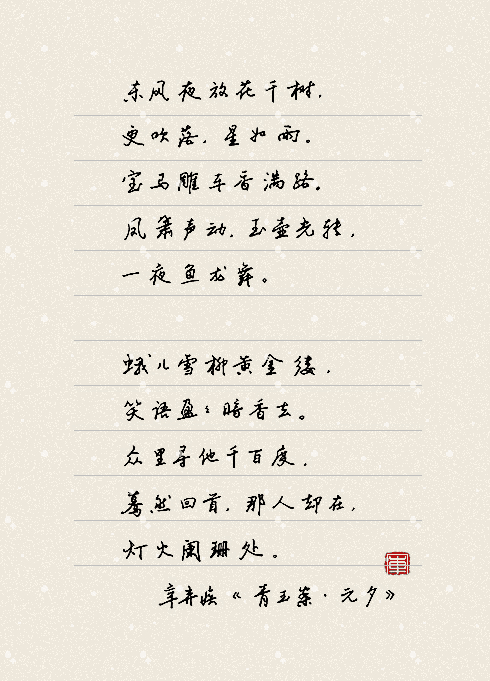 东风夜放花千树，
更吹落，星如雨。
宝马雕车香满路。
凤箫声动，玉壶光转，
一夜鱼龙舞。
蛾儿雪柳黄金缕，
笑语盈々暗香去。
众里寻他千百度，
蓦然回首，那人却在，
灯火阑珊处。
辛弃疾《青玉案·元夕》